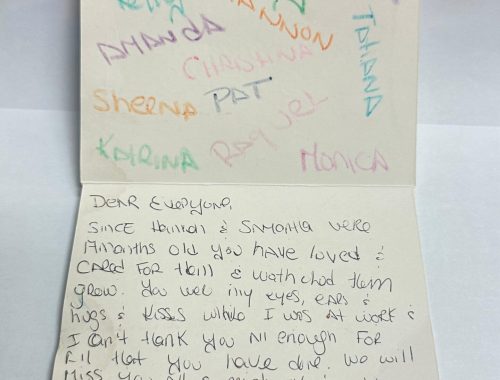 SHANNON
AMANDA
TATIANA
CHASHNA
SHEENA PAT
RAQUEL
KATRINA
MONICA
DEAR EVERYONE,
SINCE & SAMANTHA WERE
MONTHS OLD YOU HAVE LOVED &
CARED FOR THEM & WATCHED THEM
GROW. YOU WERE MY EYES, EARS &
HUGS & KISSES WHILE I WAS AT WORK &
I CAN'T THANK YOU ALL ENOUGH FOR
ALL THAT YOU HAVE DONE. WE WILL
MISS YOU ALL